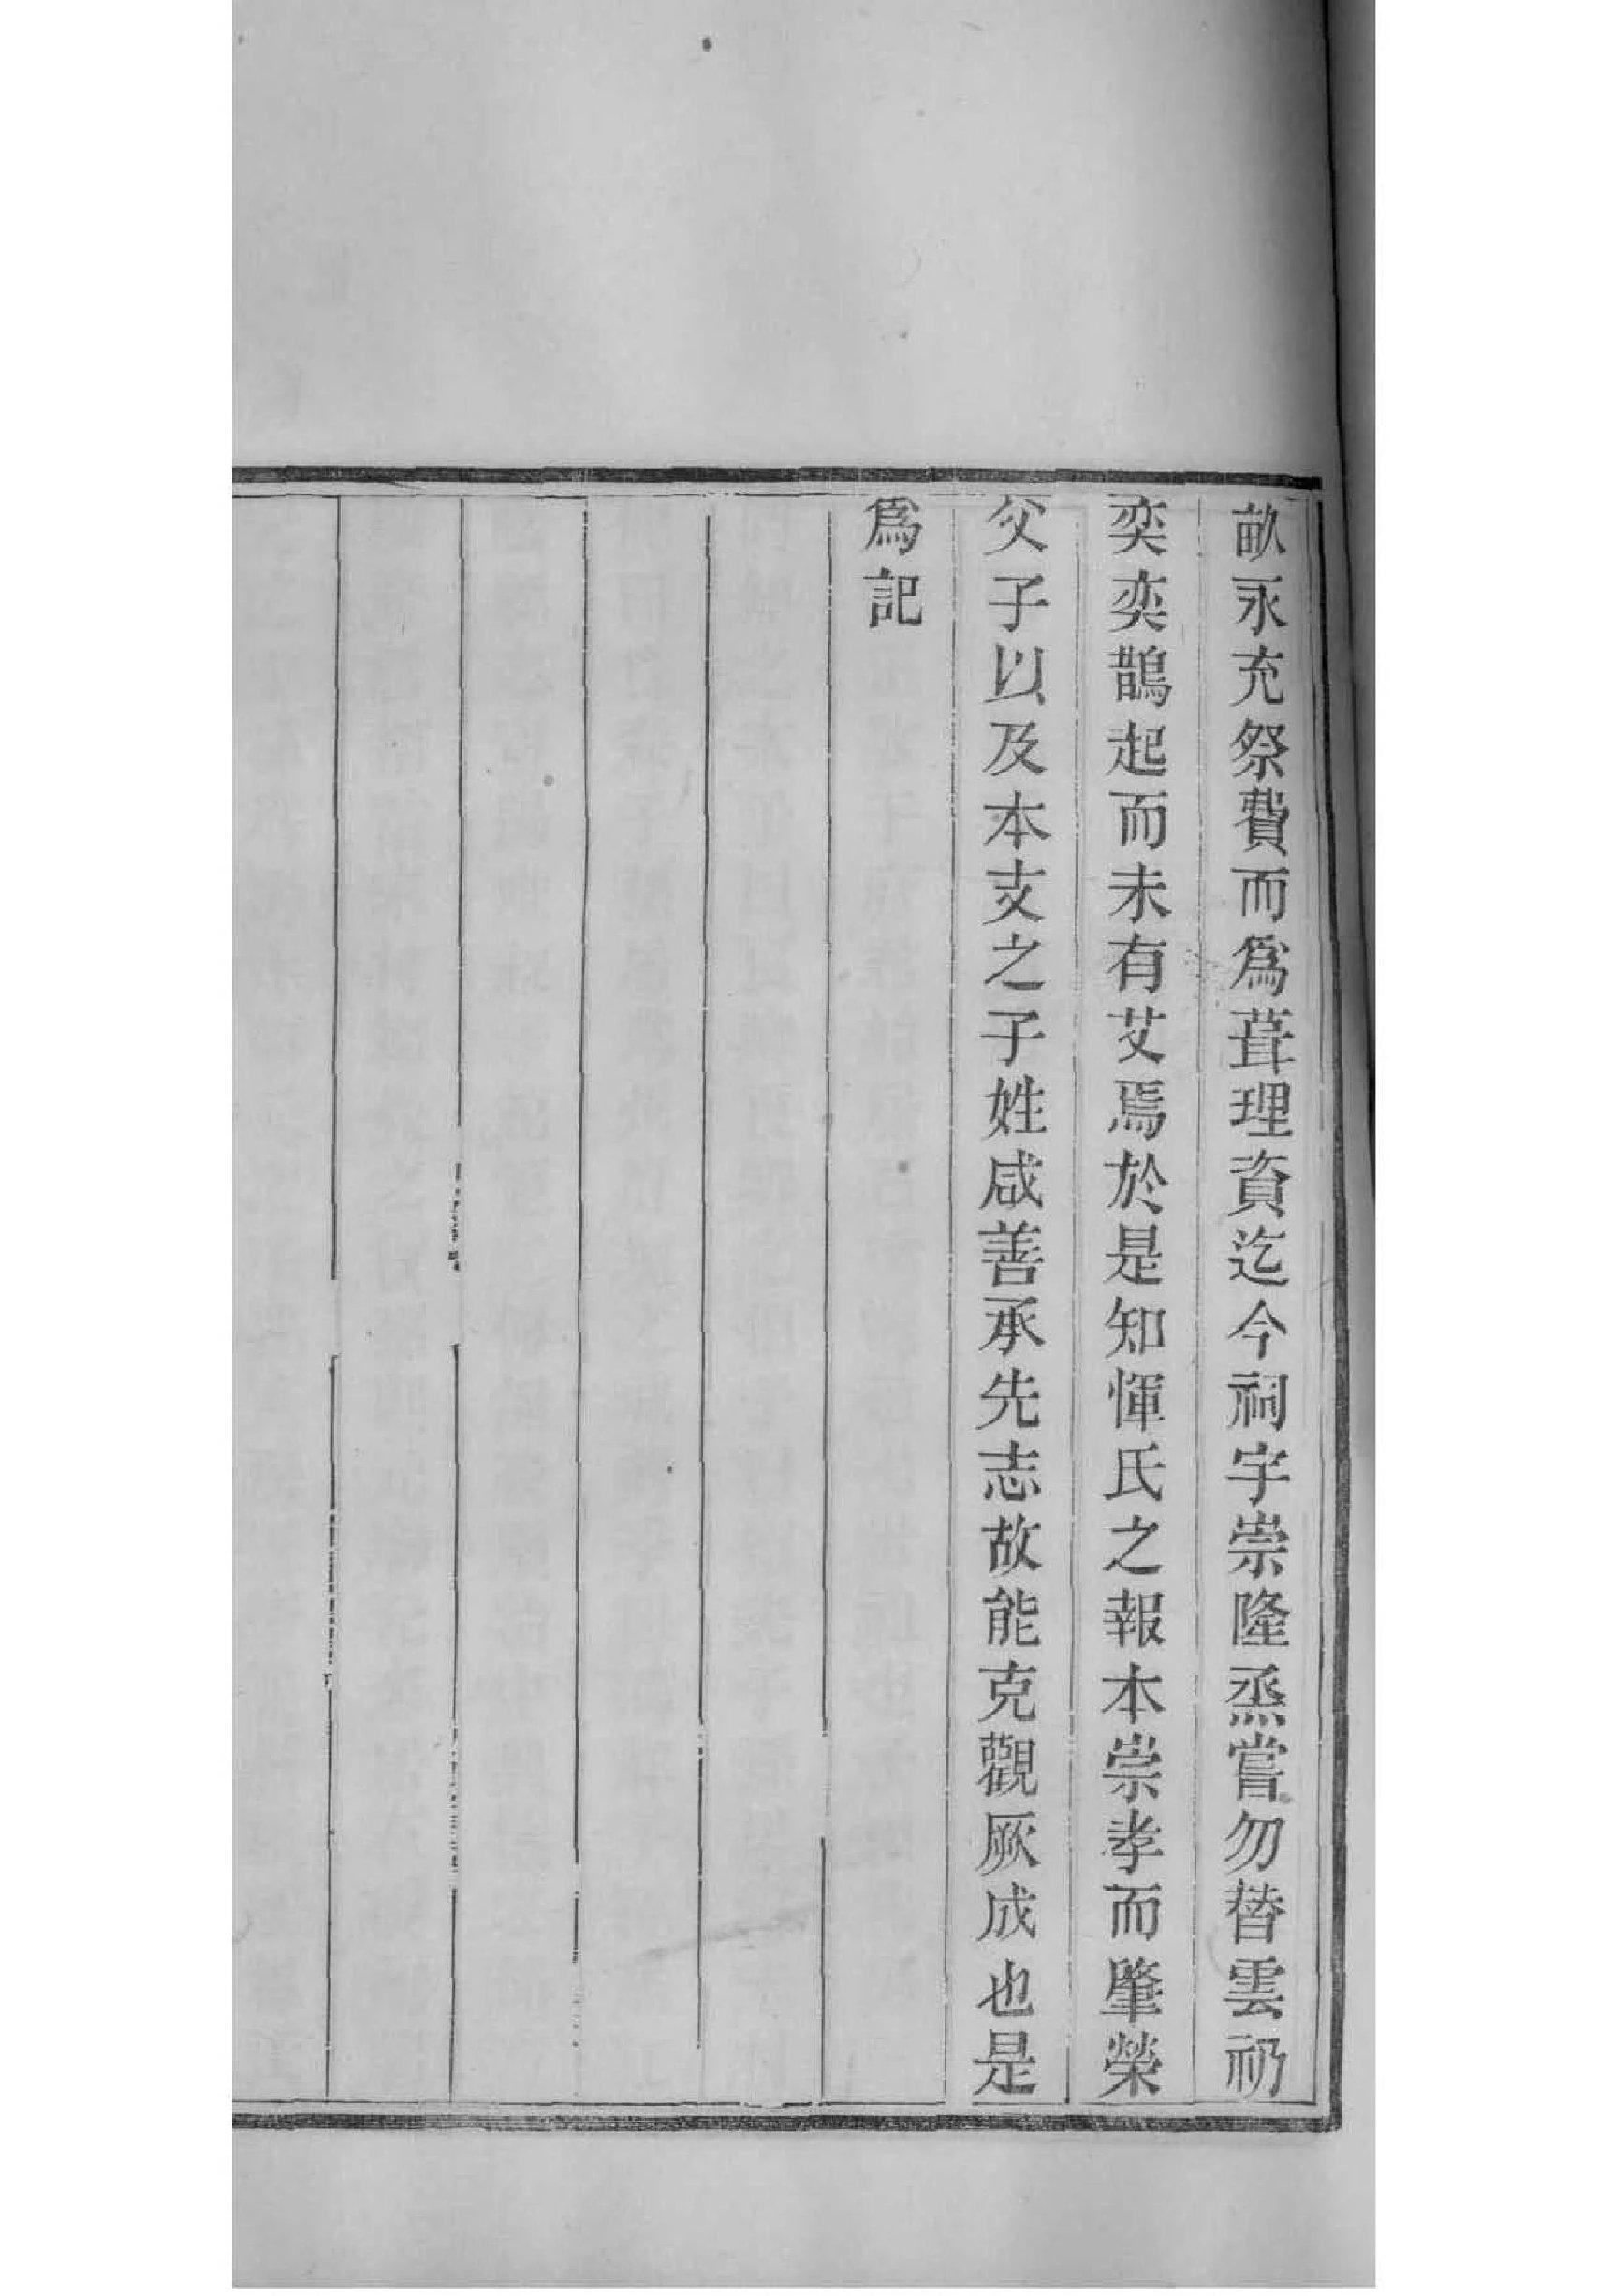 畝永充祭費而爲葺理資迄今祠宇崇隆烝嘗勿替雲礽
奕奕鵲起而未有艾焉於是知惲氏之報本崇孝而肇榮
父子以及本支之子姓咸善承先志故能克觀厥成也是
爲記